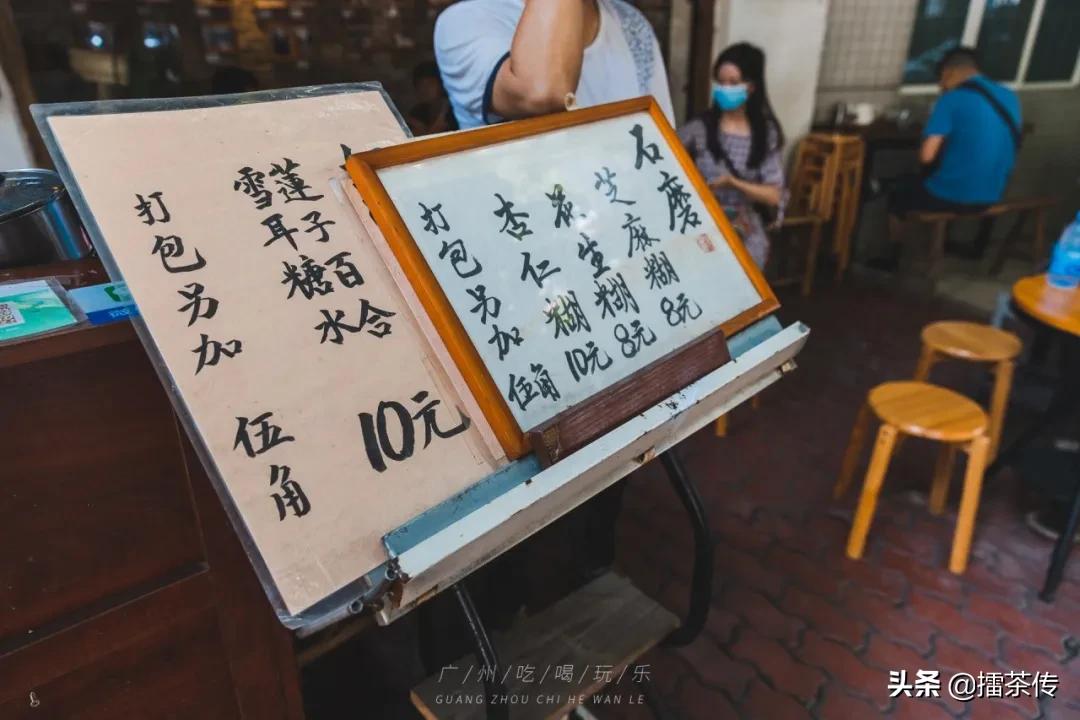 莲子百合
雪耳糖水
10元
打包另加 伍角
石磨
芝麻糊 8元
花生糊 8元
杏仁糊 10元
打包另加 伍角
广/州/吃/喝/玩/乐
GUANG ZHOU CHI HE WAN LE
头条 @擂茶传